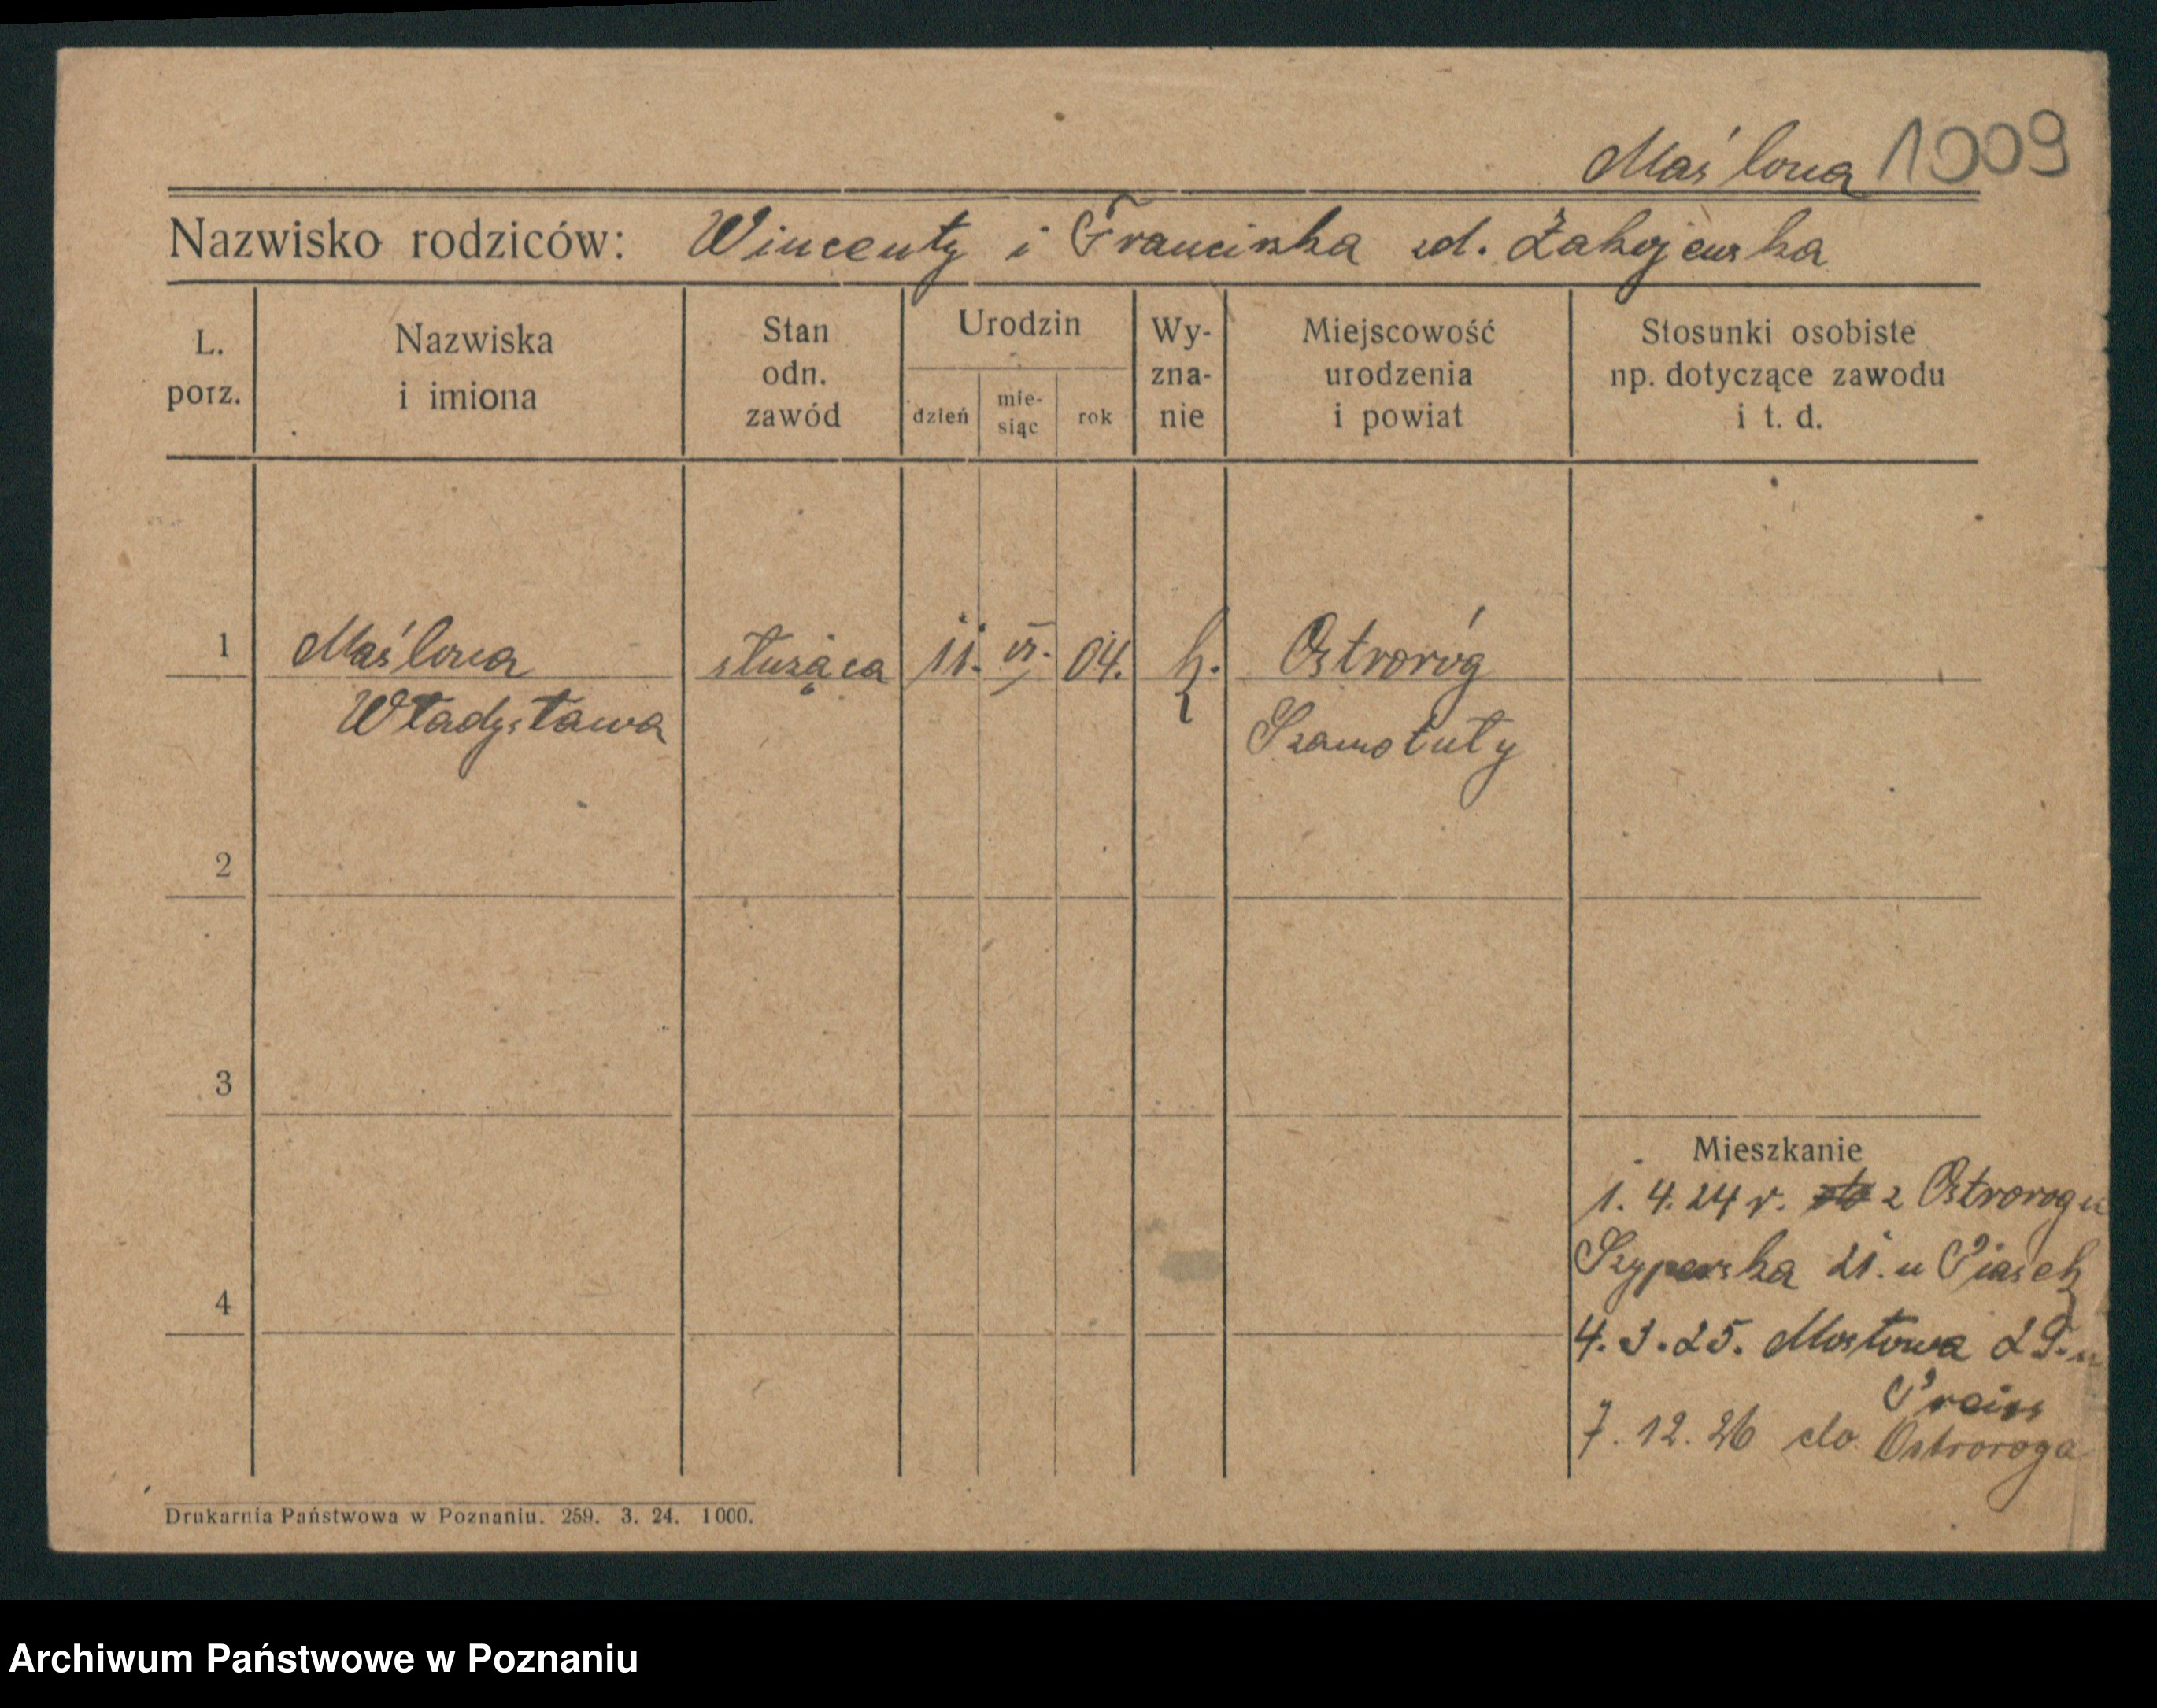 Maślona 1009
Nazwisko rodziców: Wincenty i Franciszka zd. Zakojewska
L. porz.
Nazwiska i imiona
Stan odn. zawód
Urodzin
dzień
mie-
siąc
rok
Wy-
zna-
nie
Miejscowość urodzenia i powiat
Stosunki osobiste np. dotyczące zawodu i t. d.
1 Maślona służąca 11. VI. 04. k. Ostroróg
Władysława Szamotuły
2
3
Mieszkanie
1. 4. 24 r. z Ostrorogu
Szyperska 21. u Piasek
4
4. 3. 25. Mostowa 29. u
Preiss
7. 12. 26 do Ostroroga
Drukarnia Państwowa w Poznaniu. 259. 3. 24. 1000.
Archiwum Państwowe w Poznaniu